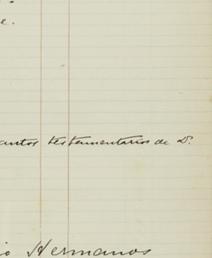 e.
antos testamentarios de D.
io Hermanos